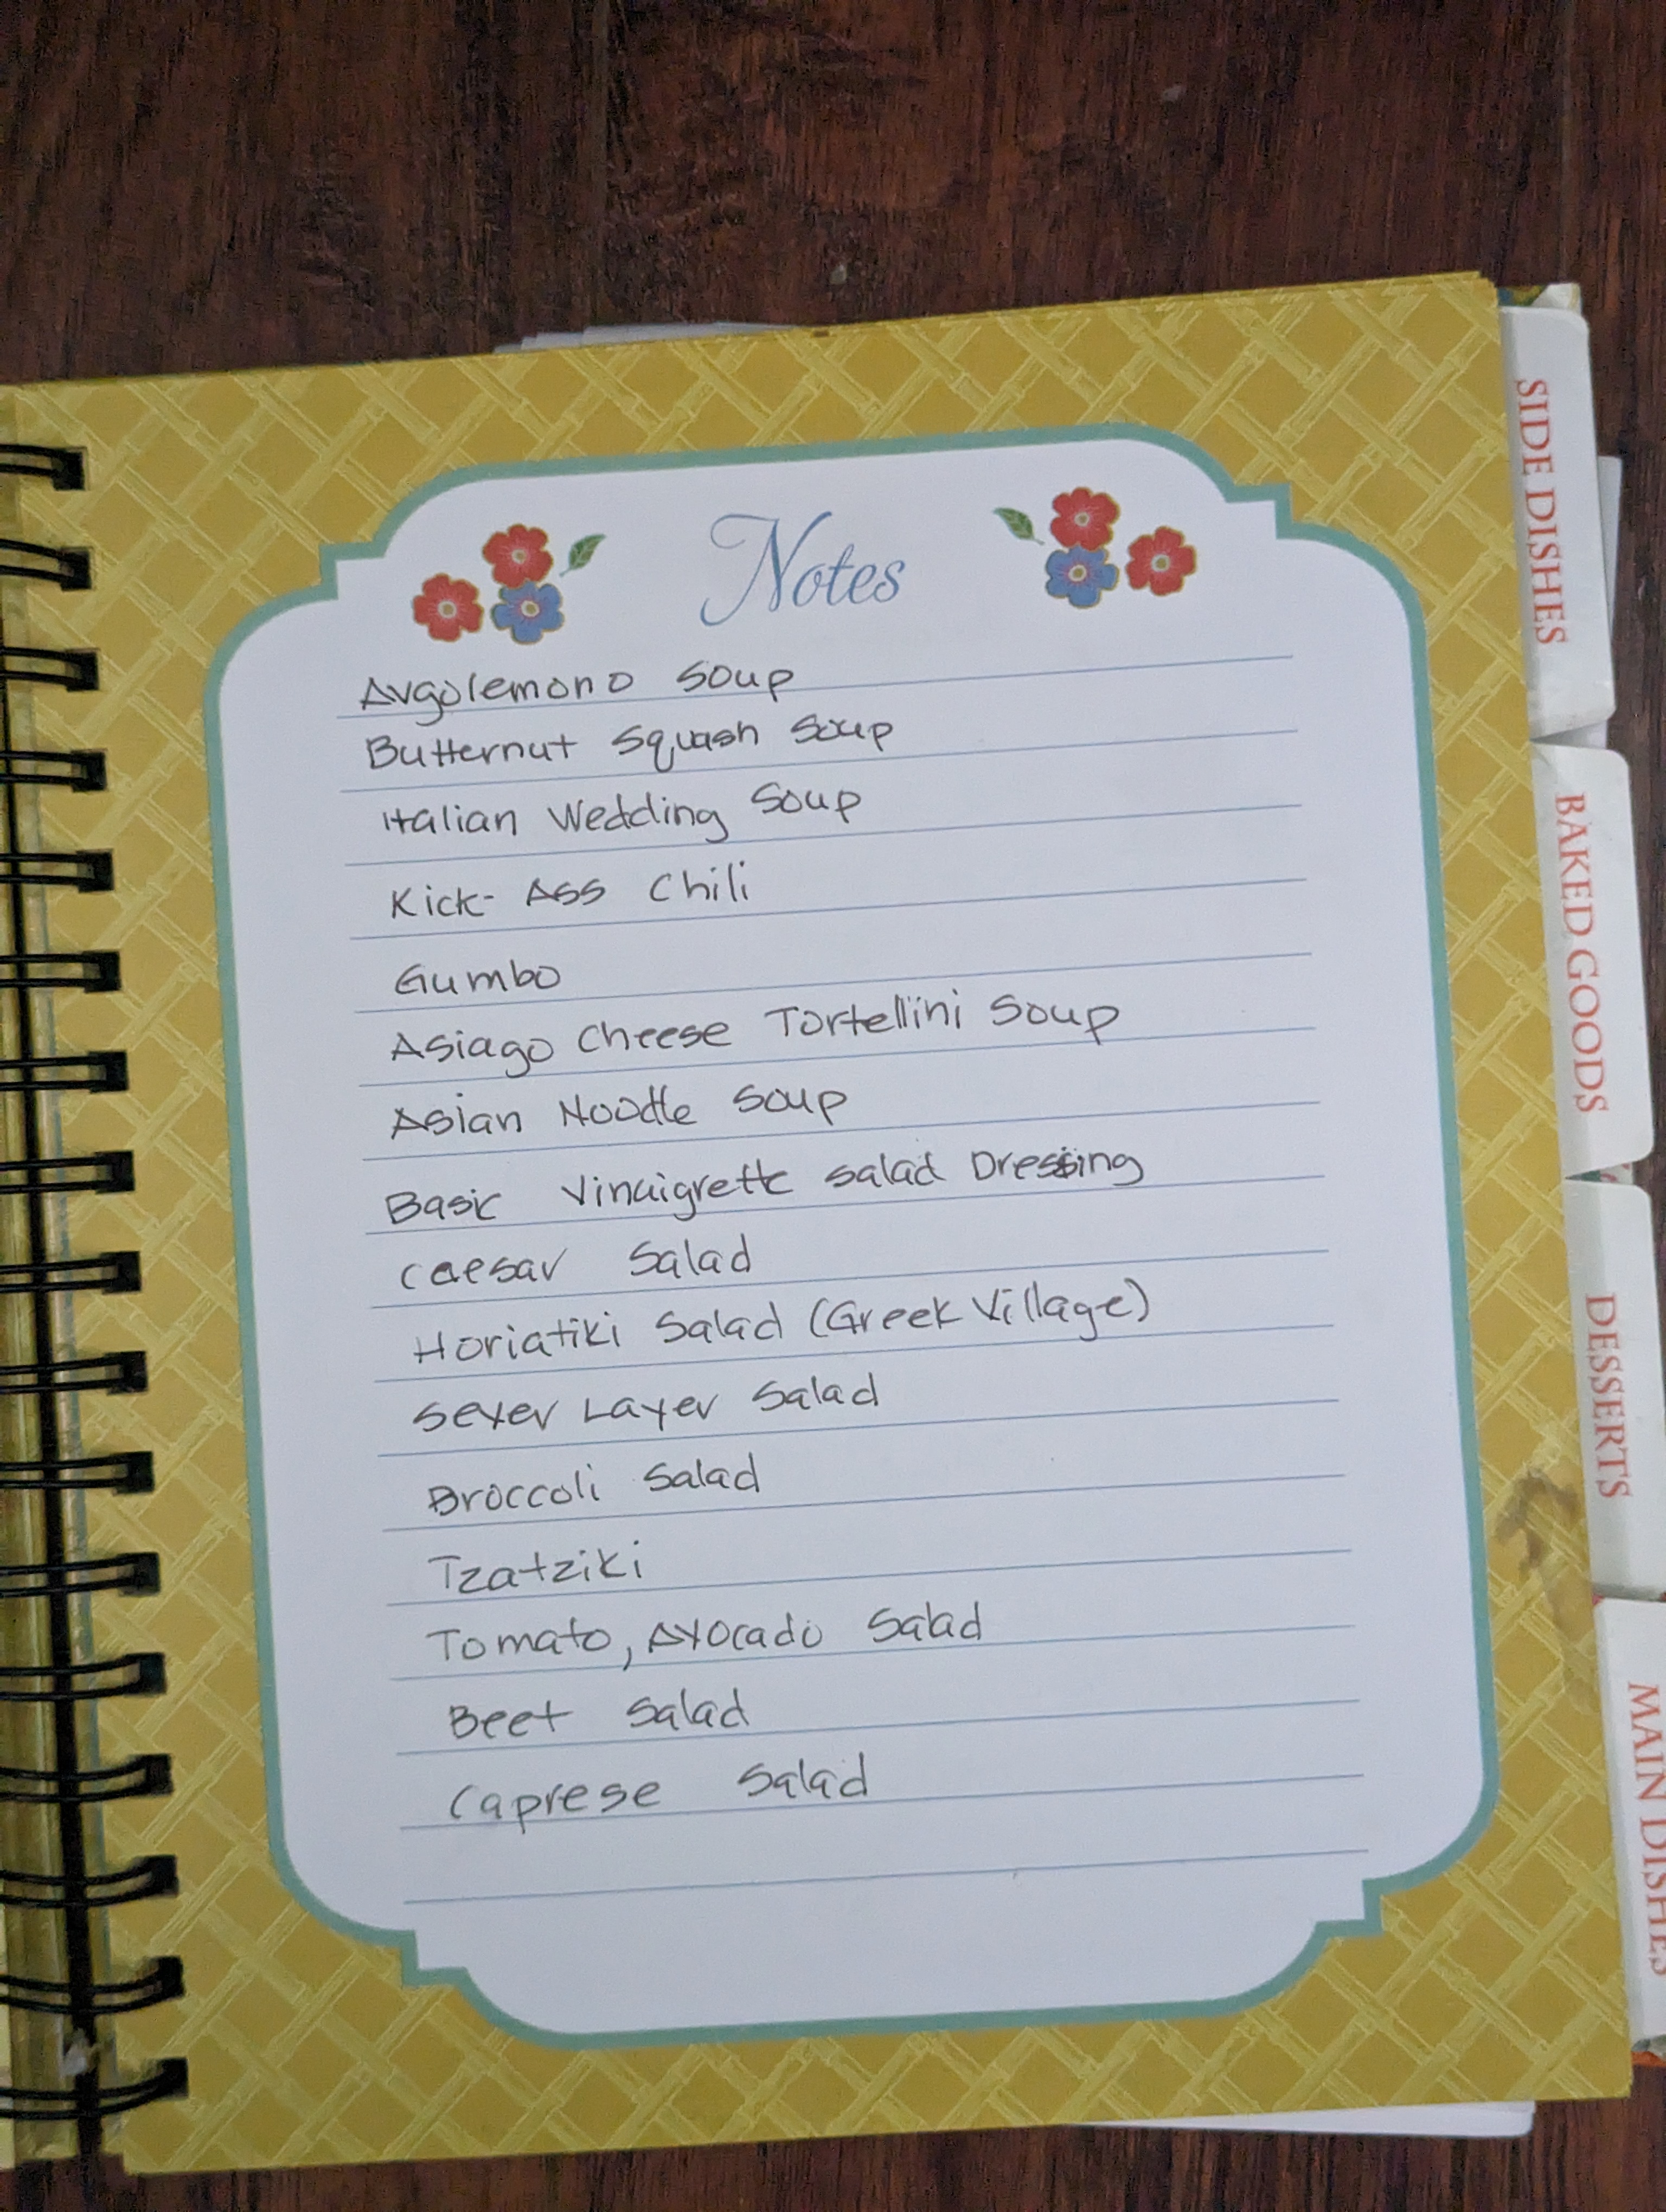 Notes
Avgolemono Soup
Butternut Squash Soup
Italian Wedding Soup
Kick-Ass Chili
Gumbo
Asiago Cheese Tortellini Soup
Asian Noodle Soup
Basic Vinaigrette Salad Dressing
Caesar Salad
Horiatiki Salad (Greek Village)
Sever Layer Salad
Broccoli Salad
Tzatziki
Tomato, Avocado Salad
Beet Salad
Caprese Salad
SIDE DISHES
BAKED GOODS
DESSERTS
MAIN DISHES